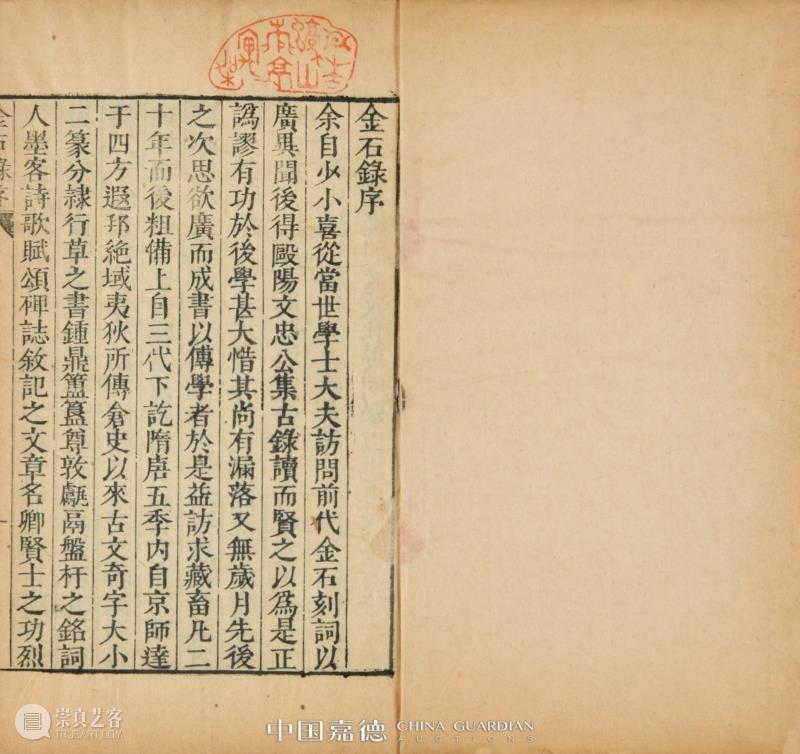 金石錄序
余自少小喜從當世學士大夫訪問前代金石刻詞以
廣異聞後得毆陽文忠公集古錄讀而賢之以爲是正
譌謬有功於後學甚大惜其尚有漏落又無歲月先後
之次思欲廣而成書以傳學者於是益訪求藏畜凡二
十年而後粗備上自三代下訖隋唐五季內自京師達
于四方遐邦絶域夷狄所傳倉史以來古文奇字大小
二篆分隷行草之書鍾鼎簠簋尊敦甗鬲盤杅之銘詞
人墨客詩歌賦頌碑誌敘記之文章名卿賢士之功烈
金石錄序
崇真艺客
TRUEART.COM
中国嘉德 CHINA GUARDIAN
AUCTIONS